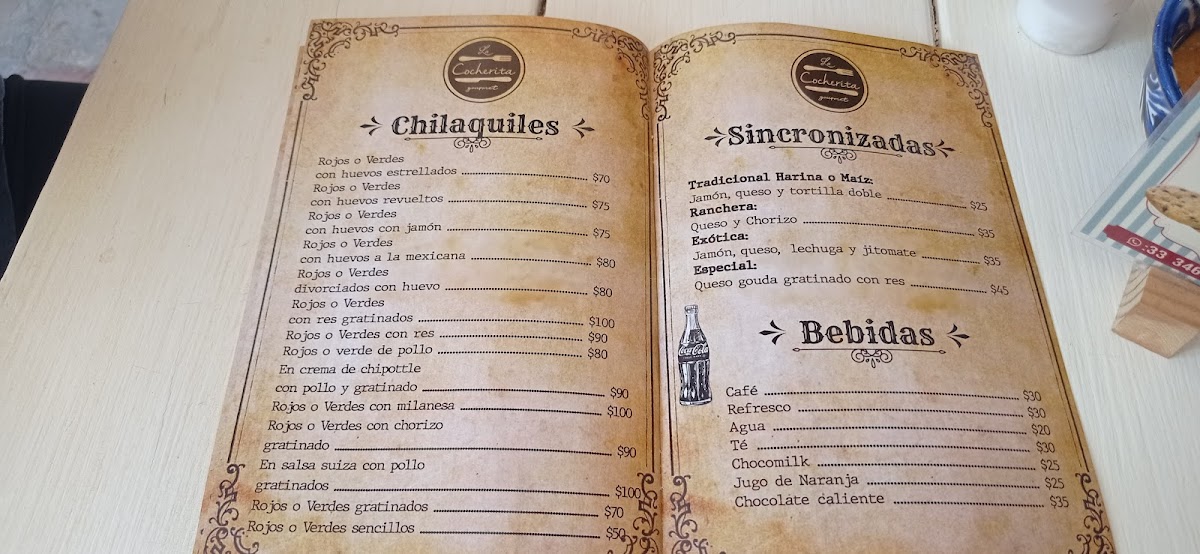 La
Cocherita
gourmet
Chilaquiles
Rojos o Verdes
con huevos estrellados $70
Rojos o Verdes
con huevos revueltos $75
Rojos o Verdes
con huevos con jamón $75
Rojos o Verdes
con huevos a la mexicana $80
Rojos o Verdes
divorciados con huevo $80
Rojos o Verdes
con res gratinados $100
Rojos o Verdes con res $90
Rojos o verde de pollo $80
En crema de chipottle
con pollo y gratinado $90
Rojos o Verdes con milanesa $100
Rojos o Verdes con chorizo
gratinado $90
En salsa suiza con pollo
gratinados $100
Rojos o Verdes gratinados $70
Rojos o Verdes sencillos $50
La
Cocherita
gourmet
Sincronizadas
Tradicional Harina o Maíz:
Jamón, queso y tortilla doble $25
Ranchera:
Queso y Chorizo $35
Exótica:
Jamón, queso, lechuga y jitomate $35
Especial:
Queso gouda gratinado con res $45
Bebidas
Coca-Cola
Café $30
Refresco $30
Agua $20
Té $30
Chocomilk $25
Jugo de Naranja $25
Chocolate caliente $35
:33 346